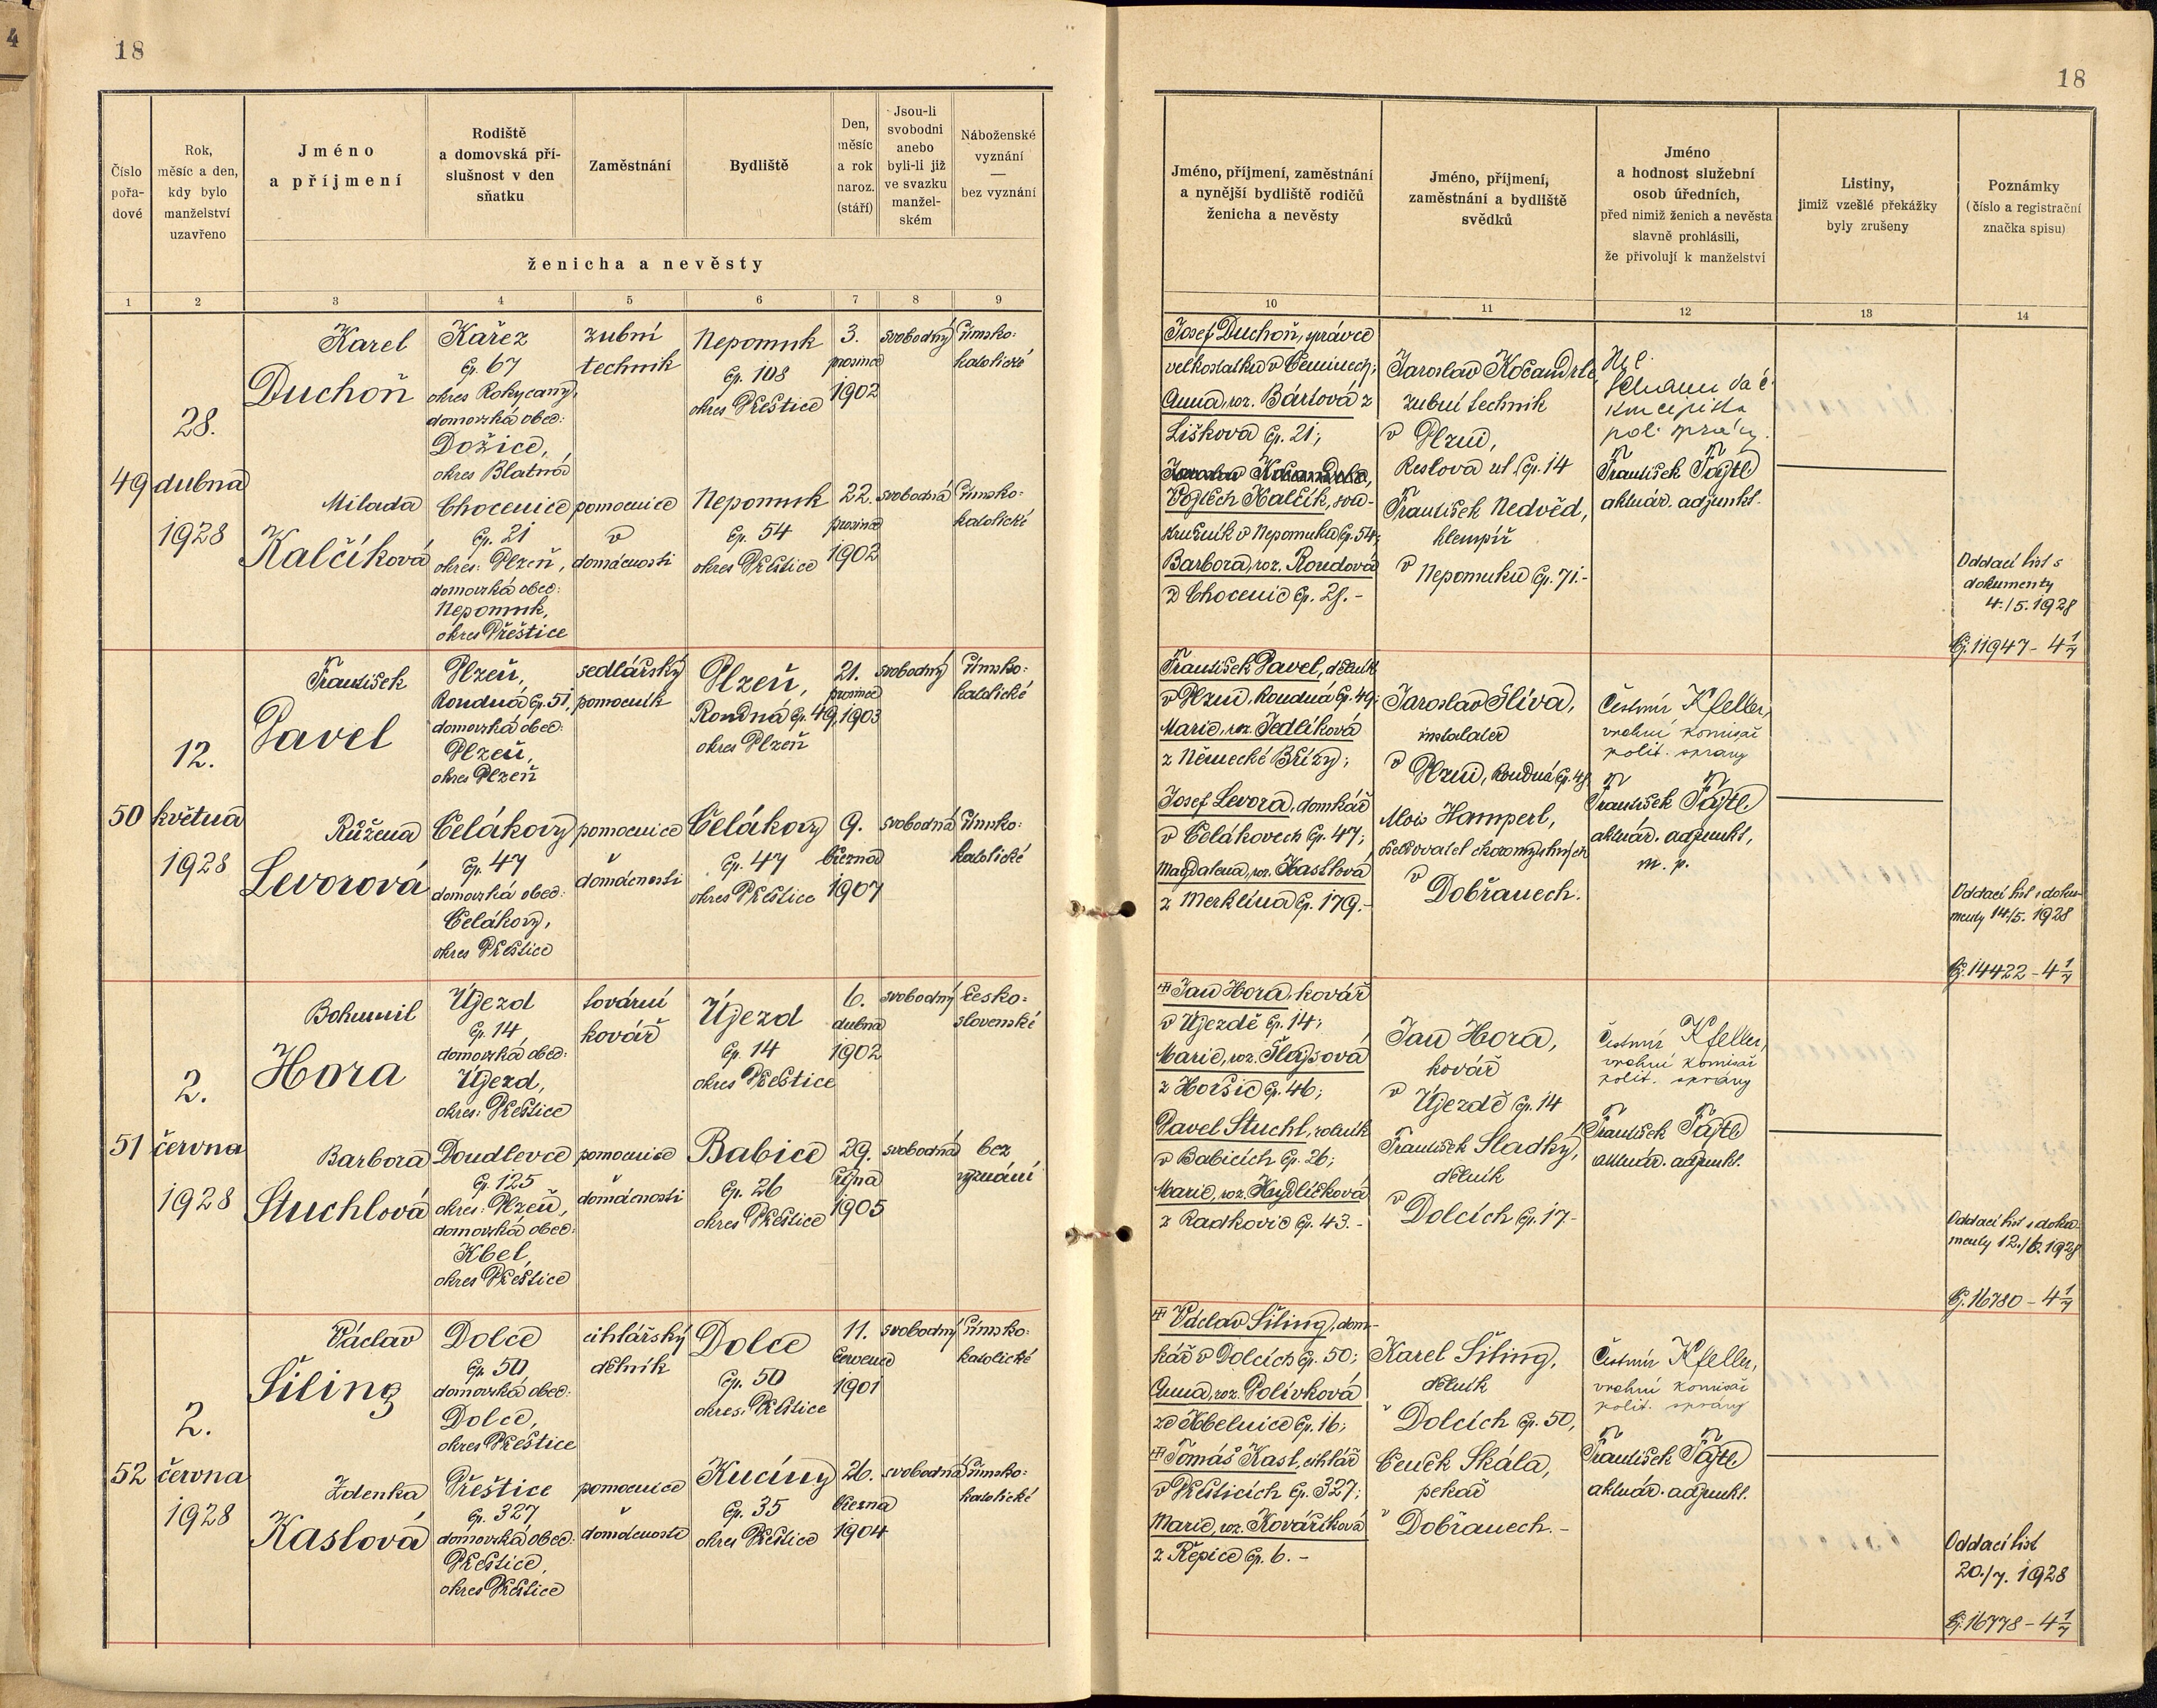 4
18
Číslo
pořa-
dové
Rok,
měsíc a den,
kdy bylo
manželství
uzavřeno
Jméno
a příjmení
Rodiště
a domovská pří-
slušnost v den
sňatku
Zaměstnání
Bydliště
Den,
měsíc
a rok
naroz.
(stáří)
Jsou-li
svobodni
anebo
byli-li již
ve svazku
manžel-
ském
Náboženské
vyznání
—
bez vyznání
ženicha a nevěsty
1 2 3 4 5 6 7 8 9
49
28.
dubna
1928
Karel
Duchoň
Kařez
čp. 67
okres Rokycany,
domovská obec:
Dožice,
okres Blatná
zubní
technik
Nepomuk
čp. 108
okres Přeštice
3.
prosince
1902
svobodný
římsko-
katolické
Milada
Kalčíková
Chocenice
čp. 21
okres: Plzeň,
domovská obec:
Nepomuk,
okres Přeštice
pomocnice
v
domácnosti
Nepomuk
čp. 54
okres Přeštice
22.
prosince
1902
svobodná
římsko-
katolické
50
12.
května
1928
František
Pavel
Plzeň,
Roudná čp. 51,
domovská obec:
Plzeň,
okres Plzeň
sedlářský
pomocník
Plzeň,
Roudná čp. 49,
okres Plzeň
21.
prosince
1903
svobodný
římsko-
katolické
Růžena
Levorová
Čelákovy
čp. 47
domovská obec:
Čelákovy,
okres Přeštice
pomocnice
v
domácnosti
Čelákovy
čp. 47
okres Přeštice
9.
března
1907
svobodná
římsko-
katolické
51
2.
června
1928
Bohumil
Hora
Újezd
čp. 14
domovská obec:
Újezd,
okres: Přeštice
tovární
kovář
Újezd
čp. 14
okres Přeštice
6.
dubna
1902
svobodný
česko-
slovenské
Barbora
Stuchlová
Doudlevce
čp. 125
okres: Plzeň,
domovská obec:
Kbel,
okres Přeštice
pomocnice
v
domácnosti
Babice
čp. 26
okres Přeštice
29.
října
1905
svobodná
bez
vyznání
52
2.
června
1928
Václav
Šiling
Dolce
čp. 50
domovská obec:
Dolce,
okres Přeštice
cihlářský
dělník
Dolce
čp. 50
okres: Přeštice
11.
července
1901
svobodný
římsko-
katolické
Zdenka
Kaslová
Přeštice
čp. 327,
domovská obec:
Přeštice,
okres Přeštice
pomocnice
v
domácnosti
Kucíny
čp. 35
okres Přeštice
26.
března
1904
svobodná
římsko-
katolické
18
Jméno, příjmení, zaměstnání
a nynější bydliště rodičů
ženicha a nevěsty
Jméno, příjmení,
zaměstnání a bydliště
svědků
Jméno
a hodnost služební
osob úředních,
před nimiž ženich a nevěsta
slavně prohlásili,
že přivolují k manželství
Listiny,
jimiž vzešlé překážky
byly zrušeny
Poznámky
(číslo a registrační
značka spisu)
10 11 12 13 14
Josef Duchoň, správce
velkostatku v Čeminech;
Anna, roz. Bártová z
Liškova čp. 21;
Vojtěch Kalčík, sou-
kružník v Nepomuku čp. 54;
Barbora, roz. Roudová
z Chocenic čp. 28.-
Jaroslav Kočandrle
zubní technik
v Plzni,
Reslova ul. čp. 14
František Nedvěd,
klempíř
v Nepomuku čp. 71.-
koncipista
pol. správy.
František Fajtl
aktuár. adjunkt.
Oddací list s
dokumenty
4./5. 1928
Čj. 11947 – 4 1/7
František Pavel, dělník
v Plzni, Roudná čp. 49;
Marie, roz. Jedličková
z Německé Břízy;
Josef Levora, domkář
v Čelákovech čp. 47;
Magdalena, roz. Hasslová
z Merklína čp. 179.-
Jaroslav Slíva,
instalatér
v Plzni, Roudná čp. 48
Alois Hamperl,
ošetřovatel choromyslných
v
Dobřanech.
Čestmír Kfeller,
vrchní komisař
polit. správy
František Fajtl
aktuár. adjunkt,
m. p.
Oddací list s doku-
menty 14./5. 1928
Čj. 14422 – 4 1/7
Jan Hora, kovář
v Újezdě čp. 14;
Marie, roz. Šlajsová
z Horšic čp. 46;
Pavel Stuchl, rolník
v Babicích čp. 26;
Marie, roz. Hajdličková
z Radkovic čp. 43.-
Jan Hora,
kovář
v Újezdě čp. 14
František Sladký,
dělník
v
Dolcích čp. 17-
Čestmír Kfeller,
vrchní komisař
polit. správy
František Fajtl
aktuár. adjunkt.
Oddací list s doku-
menty 12./6. 1928
Čj. 16780 – 4 1/7
Václav Šiling, dom-
kář v Dolcích čp. 50;
Anna, roz. Polívková
ze Kbelnice čp. 16;
Tomáš Kasl, cihlář
v Přešticích čp. 327;
Marie, roz. Kováříková
z Řepice čp. 6.-
Karel Šiling,
dělník
v Dolcích čp. 50,
Čeněk Skála,
pekař
v Dobřanech.-
Čestmír Kfeller,
vrchní komisař
polit. správy
František Fajtl
aktuár. adjunkt.
Oddací list
20./7. 1928
Čj. 16778 – 4 1/7